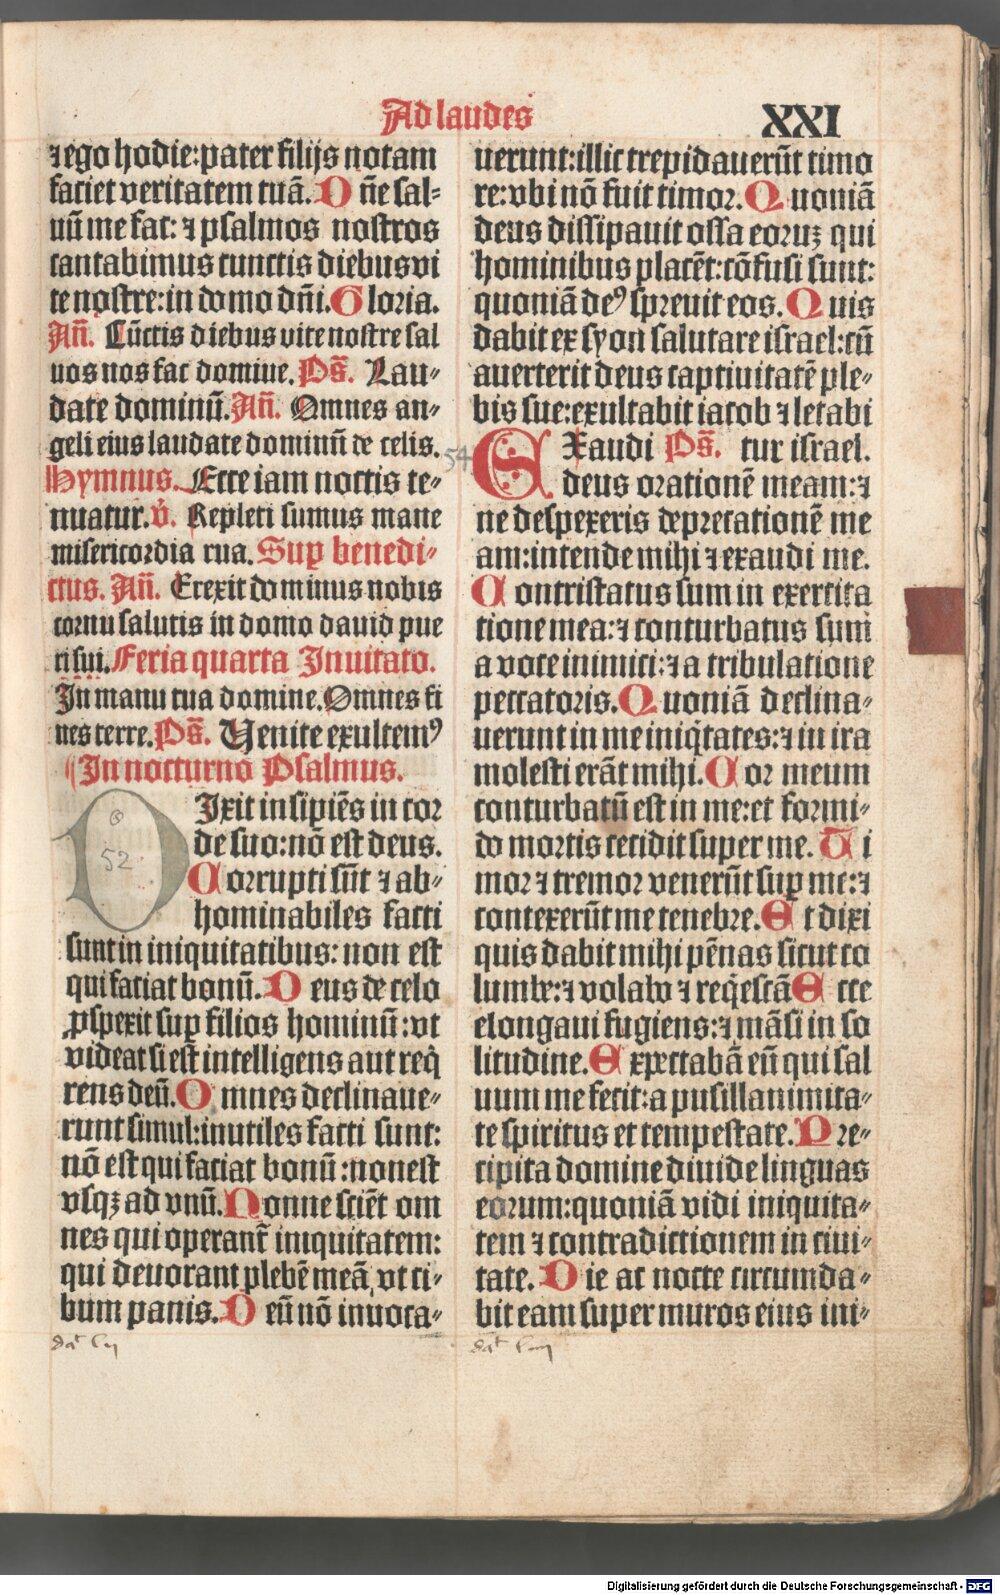 Ad laudes
XXI
⁊ ego hodie: pater filijs notam
faciet veritatem tuā. D ñe sal-
uū me fac: ⁊ psalmos nostros
cantabimus cunctis diebus vi
te nostre: in domo dñi. G loria.
Añ. Cūctis diebus vite nostre sal
uos nos fac domine. Ps̄. Lau-
date dominū. Añ. Omnes an-
geli eius laudate dominū de celis.
Hymnus. Ecce iam noctis te-
nuatur. v̄. Repleti sumus mane
misericordia tua. Sup benedi-
ctus. Añ. Erexit dominus nobis
cornu salutis in domo dauid pue
ri sui. Feria quarta Inuitato.
In manu tua domine. Omnes fi
nes terre. Ps̄. Venite exultemꝰ
In nocturno Psalmus.
D Ixit insipiēs in cor
de suo: nō est deus.
C orrupti sūt ⁊ ab-
hominabiles facti
sunt in iniquitatibus: non est
qui faciat bonū. D eus de celo
ꝓspexit sup filios hominū: vt
videat si est intelligens aut req̇
rens deū. O mnes declinaue-
runt simul: inutiles facti sunt:
nō est qui faciat bonū: non est
vsqꝫ ad vnū. N onne sciēt om
nes qui operanť iniquitatem:
qui deuorant plebē meā, vt ci-
bum panis. D eū nō inuoca-
uerunt: illic trepidauerūt timo
re: vbi nō fuit timor. Q uoniā
deus dissipauit ossa eoruꝫ qui
hominibus placēt: cōfusi sunt:
quoniā deꝰ spreuit eos. Q uis
dabit ex syon salutare israel: cū
auerterit deus captiuitatē ple-
bis sue: exultabit iacob ⁊ letabi
E Xaudi Ps̄. tur israel.
54
deus orationē meam: ⁊
ne despexeris deprecationē me
am: intende mihi ⁊ exaudi me.
C ontristatus sum in exercita
tione mea: ⁊ conturbatus sum
a voce inimici: ⁊ a tribulatione
peccatoris. Q uoniā declina-
uerunt in me iniq̇tates: ⁊ in ira
molesti erāt mihi. C or meum
conturbatū est in me: et formi-
do mortis cecidit super me. T i
mor ⁊ tremor venerūt sup me: ⁊
contexerūt me tenebre. E t dixi
quis dabit mihi pēnas sicut co
lumbe: ⁊ volabo ⁊ req̇escā E cce
elongaui fugiens: ⁊ māsi in so
litudine. E xpectabā eū qui sal
uum me fecit: a pusillanimita-
te spiritus et tempestate. P re-
cipita domine diuide linguas
eorum: quoniā vidi iniquita-
tem ⁊ contradictionem in ciui-
tate. D ie ac nocte circumda-
bit eam super muros eius ini-
52
Digitalisierung gefördert durch die Deutsche Forschungsgemeinschaft - DFG